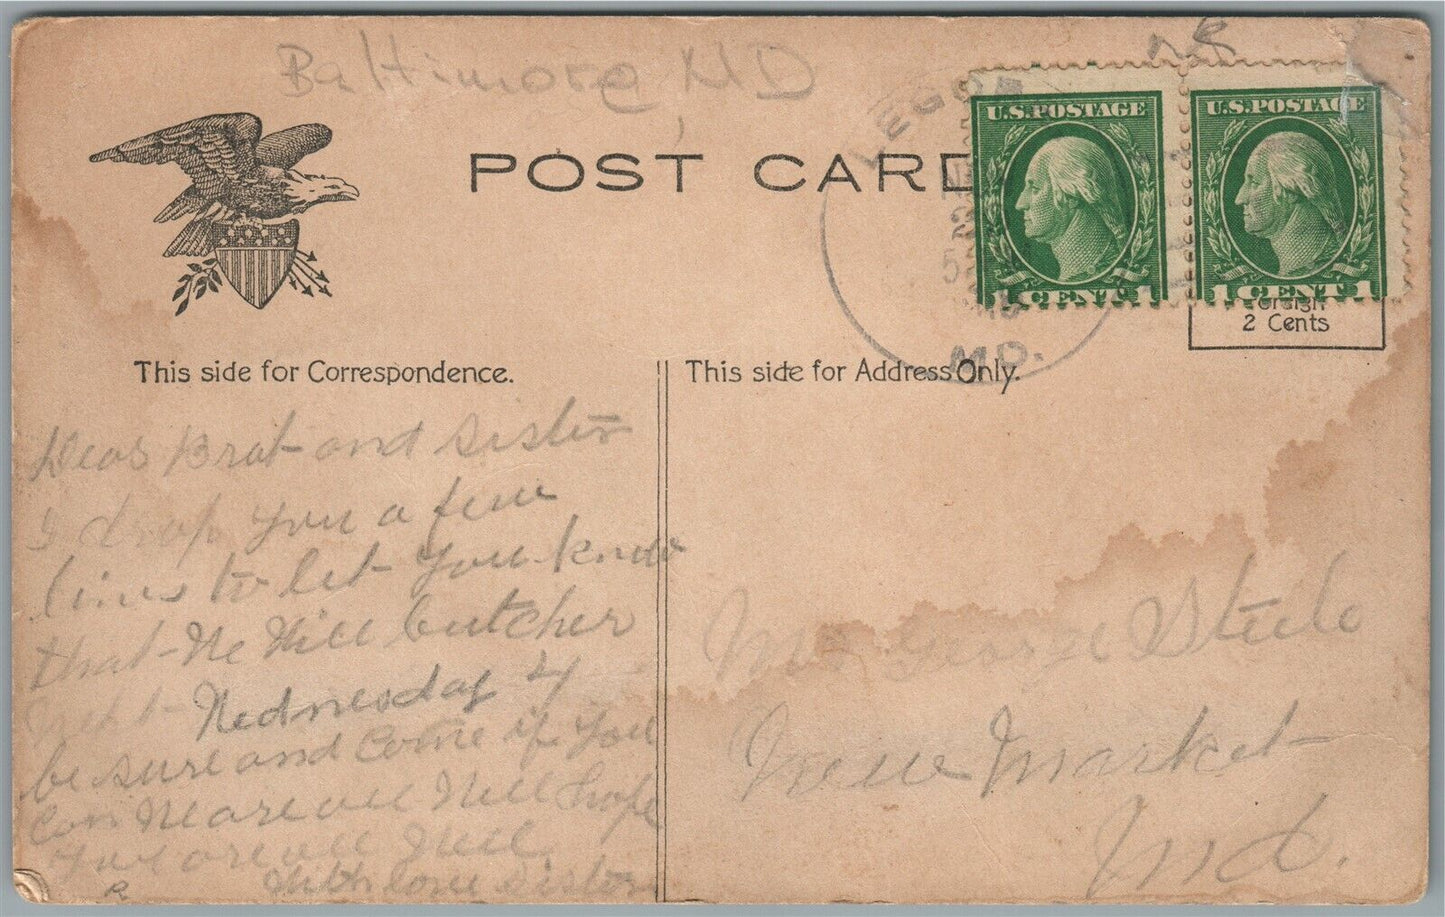 Baltimore, MD
POST CARD
LEGOR
MD.
U.S. POSTAGE
1 CENT 1
U.S. POSTAGE
1 CENT 1
Foreign
2 Cents
This side for Correspondence.
This side for Address Only.
Dear Brot and Sister
I drop you a few
lines to let you know
that We Will butcher
next Wednesday 4
be sure and come if you
can We are all Well hope
you are all Well
With love sister
Mrs George Steele
New Market
Md.